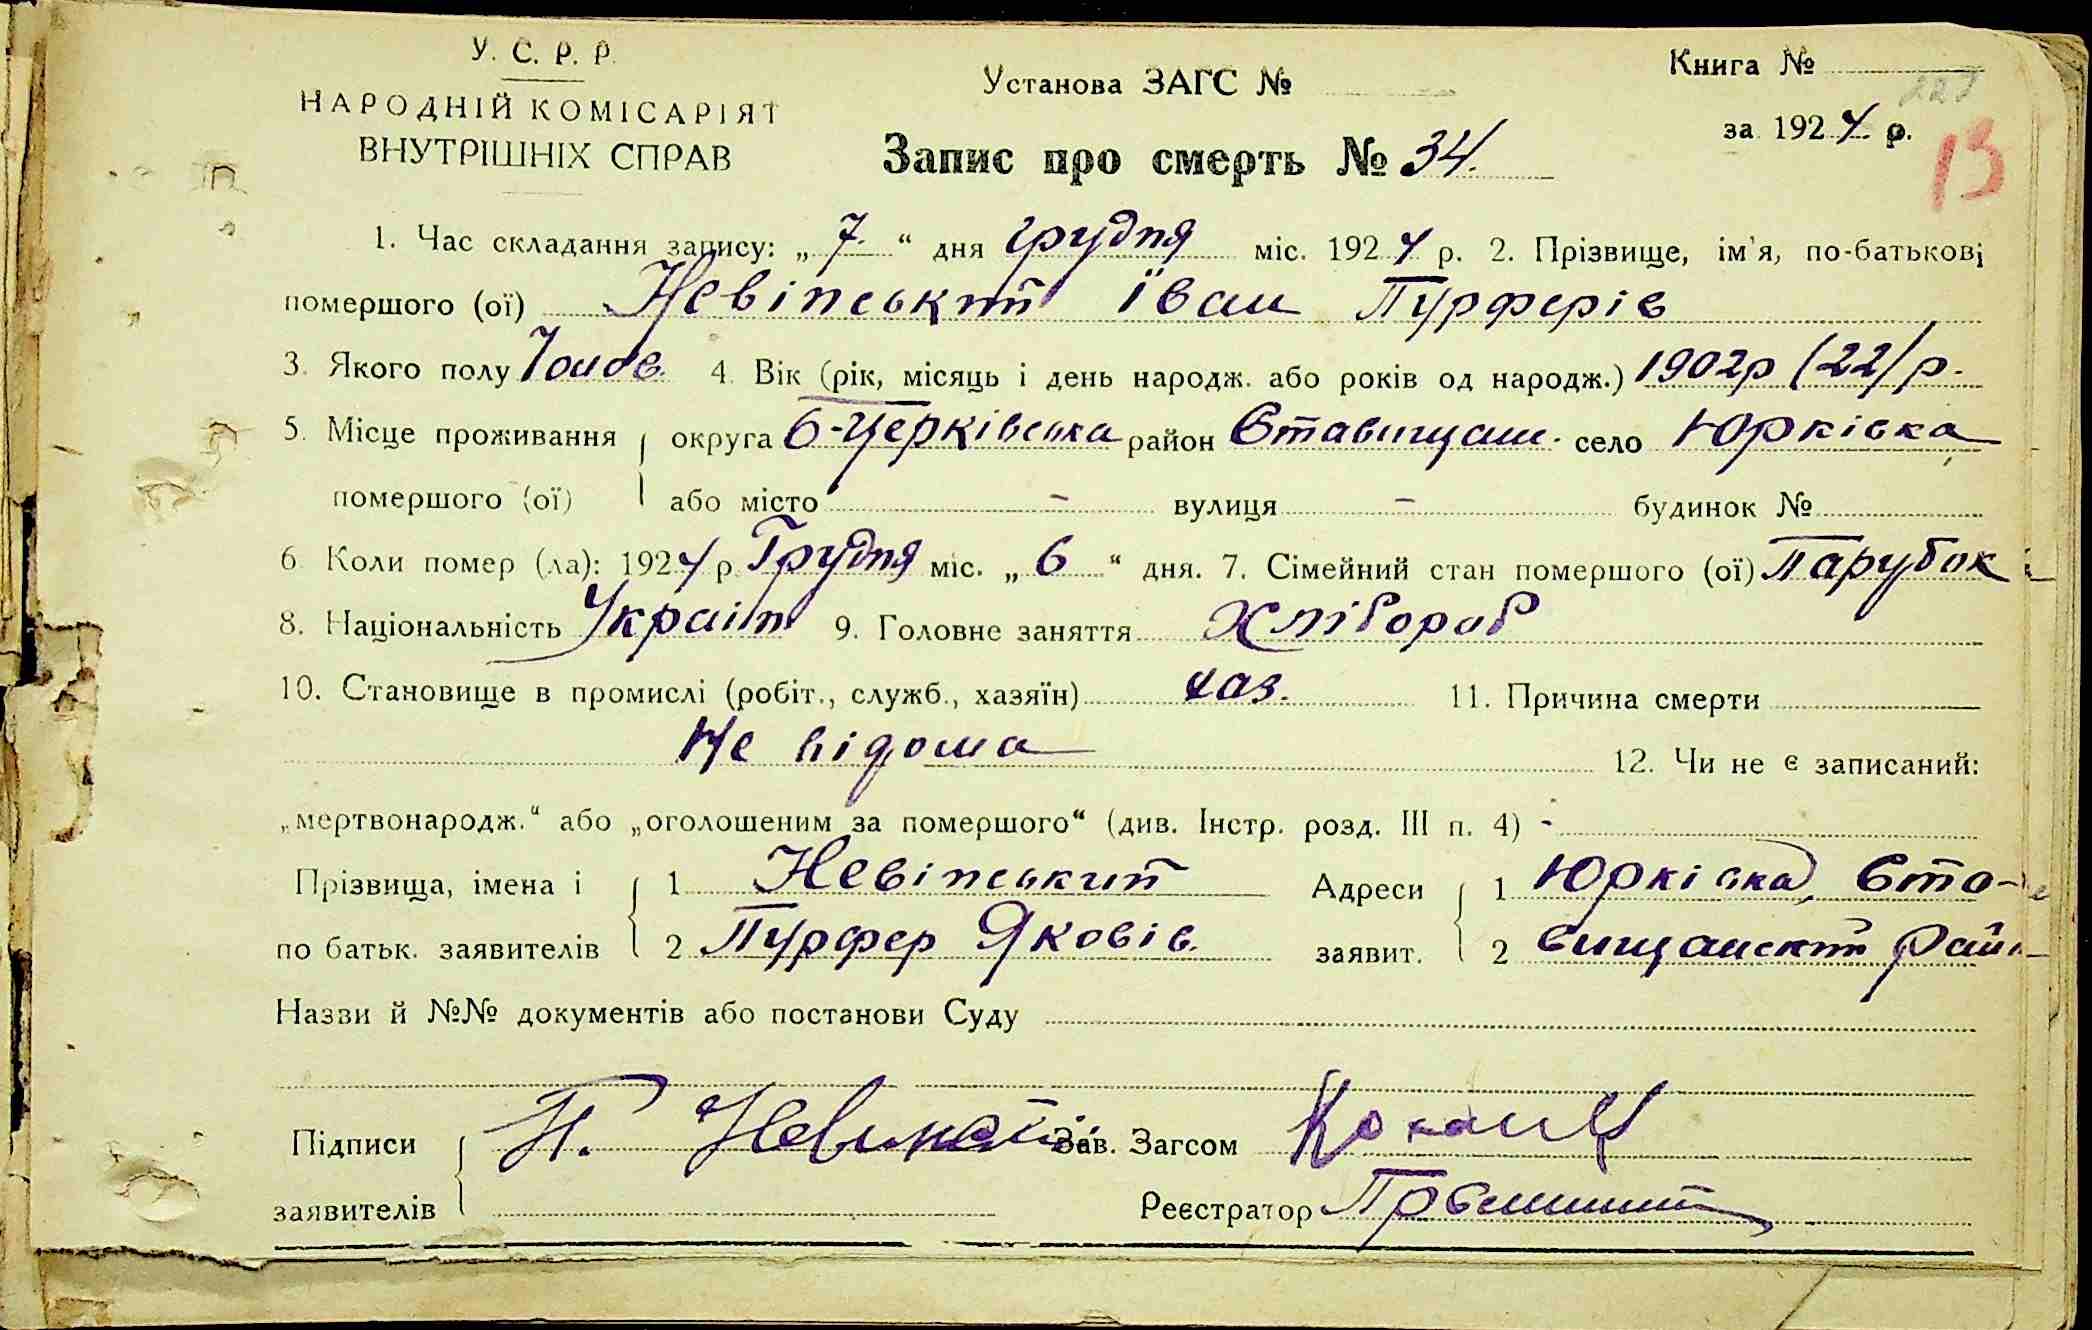 У. С. Р. Р.
НАРОДНІЙ КОМІСАРІЯТ
ВНУТРІШНІХ СПРАВ
Установа ЗАГС №
Запис про смерть № 34.
Книга №
за 1924 р.
13
1. Час складання запису: „7.“ дня грудня міс. 1924 р. 2. Прізвище, ім'я, по-батькові
помершого (ої) Невінський Іван Пурферів
3. Якого полу Чолов. 4. Вік (рік, місяць і день народж. або років од народж.) 1902р (22) р.
5. Місце проживання округа Б-Церківська район Ставищан. село Юрківка
помершого (ої) або місто - вулиця - будинок №
6 Коли помер (ла): 1924 р. Грудня міс. „6“ дня. 7. Сімейний стан помершого (ої) Парубок
8. Національність Україн 9. Головне заняття Хлібороб
10. Становище в промислі (робіт., служб., хазяїн) хаз. 11. Причина смерти
Не відома 12. Чи не є записаний:
„мертвонародж.“ або „оголошеним за помершого“ (див. Інстр. розд. III п. 4) -
Прізвища, імена і 1 Невінський Адреси 1 Юрківка, Ста-
по батьк. заявителів 2 Пурфер Яковів. заявит. 2 вищанский рай
Назви й №№ документів або постанови Суду
Підписи П. Зав. Загсом
заявителів Реєстратор